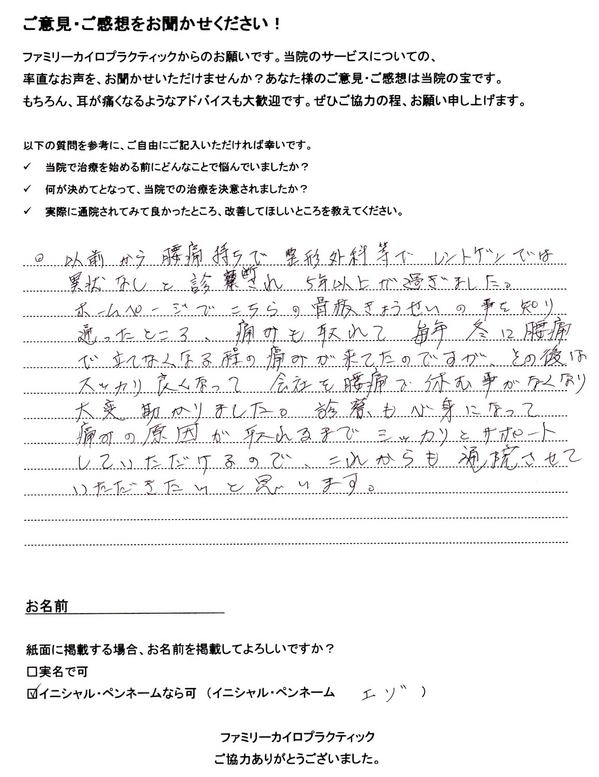 ご意見・ご感想をお聞かせください！
ファミリーカイロプラクティックからのお願いです。当院のサービスについての、
率直なお声を、お聞かせいただけませんか？あなた様のご意見・ご感想は当院の宝です。
もちろん、耳が痛くなるようなアドバイスも大歓迎です。ぜひご協力の程、お願い申し上げます。
以下の質問を参考に、ご自由にご記入いただければ幸いです。
✓ 当院で治療を始める前にどんなことで悩んでいましたか？
✓ 何が決めてとなって、当院での治療を決意されましたか？
✓ 実際に通院されてみて良かったところ、改善してほしいところを教えてください。
○ 以前から腰痛持ちで 整形外科等で レントゲンでは
異状なしと診断され 5年以上が過ぎました。
ホームページでこちらの骨盤きょうせいの事を知り
通ったところ、痛みも取れて 毎年 冬に腰痛
で立てなくなる程の痛みが来てたのですが その後は
スッカリ良くなって 会社を腰痛で休む事がなくなり
大変助かりました。診療も心身になって
痛みの原因が取れるまで シッカリとサポート
していただけるので、これからも通院させて
いただきたいと思います。
お名前
紙面に掲載する場合、お名前を掲載してよろしいですか？
□実名で可
☑イニシャル・ペンネームなら可（イニシャル・ペンネーム エゾ ）
ファミリーカイロプラクティック
ご協力ありがとうございました。